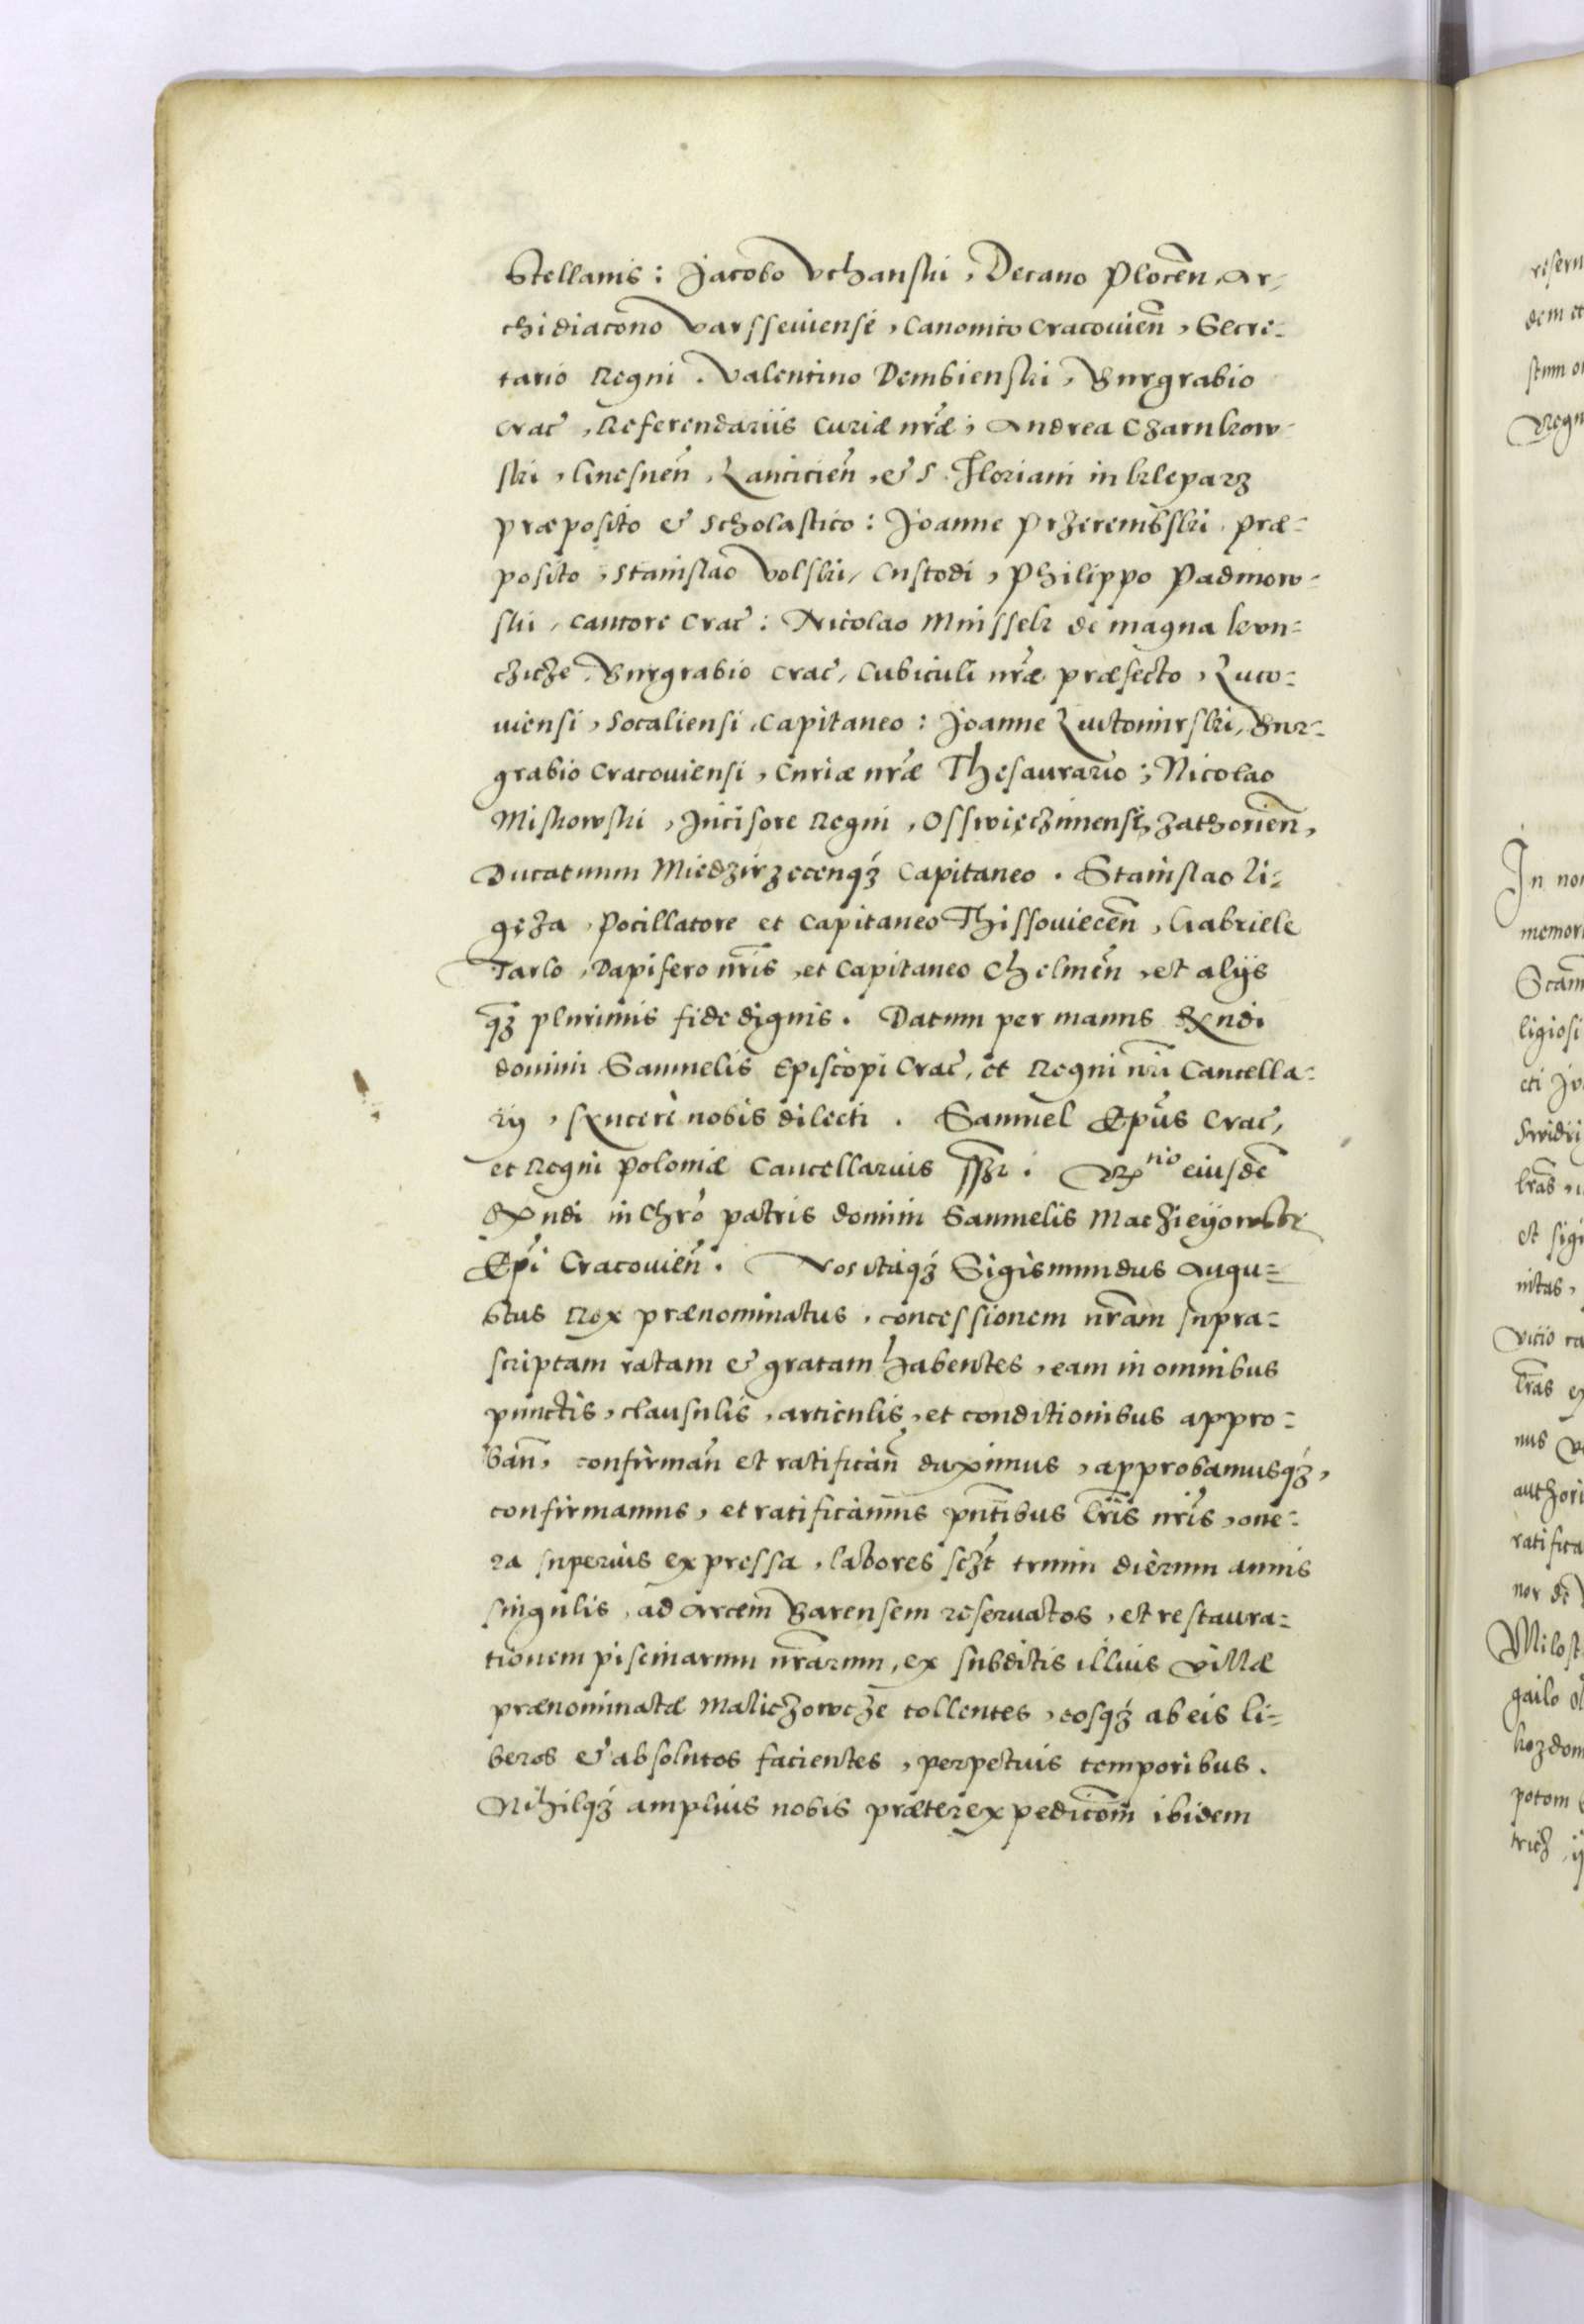 Stellanis: Jacobo Vchanski, Decano Plocen̄, Ar-
chidiacono Varsseuiensi, Canonico Cracouien̄, Secre-
tario Regni. Valentino Dembienski, Burgrabio
Crac̄, Referendariis Curiæ nr̄æ; Andrea Czarnkow-
ski, Gnesnen̄, Lancicien̄, & S. Floriani in kleparz
præposito & Scholastico: Joanne Przerembski præ-
posito, Stanislao Volski, Custodi, Philippo Padniow-
ski, Cantore Crac̄: Nicolao Mnisselz de magna kvn-
czicze, Burgrabio Crac̄, Cubiculi nr̄æ præfecto, Luco-
uiensi, Socaliensi Capitaneo: Joanne Lutomirski, Bur-
grabio Cracouiensi, Curiæ nr̄æ Thesaurario; Nicolao
Miskowski, Incisore Regni, Osswięczimensi, Zathorien̄,
Ducatuum Miedzirzecenq́ Capitaneo. Stanislao Li-
gęza, Pocillatore et Capitaneo Thissouiecen̄, Gabriele
Tarlo, Dapifero nr̄is, et Capitaneo Chelmen̄, et alijs
q̄ꝫ plurimis fide dignis. Datum per manus Rx̄ndi
domini Samuelis Episcopi Crac̄, et Regni nr̄i Cancella-
rij, syncerè nobis dilecti. Samuel Ep̄us Crac̄,
et Regni Poloniæ Cancellarius sszt. Rꝑ tio eiusdē
Rx̄ndi in Chr̄o patris domini Samuelis Maczieyowski
Ep̄i Cracouien̄. Nos itaqꝫ́ Sigismundus Augu-
stus Rex prænominatus, concessionem nr̄am supra-
scriptam ratam & gratam habentes, eam in omnibus
punctis, clausulis, articulis, et conditionibus appro-
ban̄, confirman̄ et ratifican̄ duximus, approbamusqꝫ́,
confirmamus, et ratificamus pn̄tibus lr̄is nr̄is, one-
ra superius expressa, labores sczt̄ trium dierum annis
singulis, ad arcem Barensem reseruatos, et restaura-
tionem piscinarum nr̄arum, ex subditis illius villæ
prænominatæ Maliczowcze tollentes, eosqꝫ́ ab eis li-
beros & absolutos facientes, perpetuis temporibus.
Nihilqꝫ́ amplius nobis præter expedicōm̄ ibidem